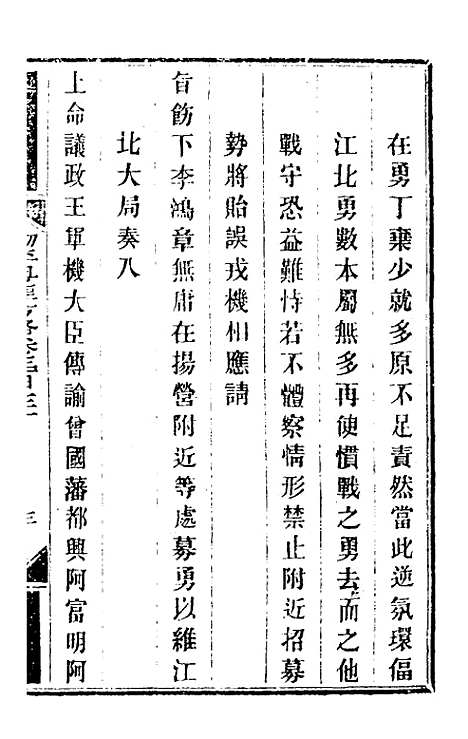 在勇丁棄少就多原不足責然當此逆氛環偪
江北勇數本屬無多再使慣戰之勇去而之他
戰守恐益難恃若不體察情形禁止附近招募
勢將貽誤戎機相應請
旨飭下李鴻章無庸在揚營附近等處募勇以維江
北大局奏入
上命議政王軍機大臣傳諭曾國藩都興阿富明阿
三